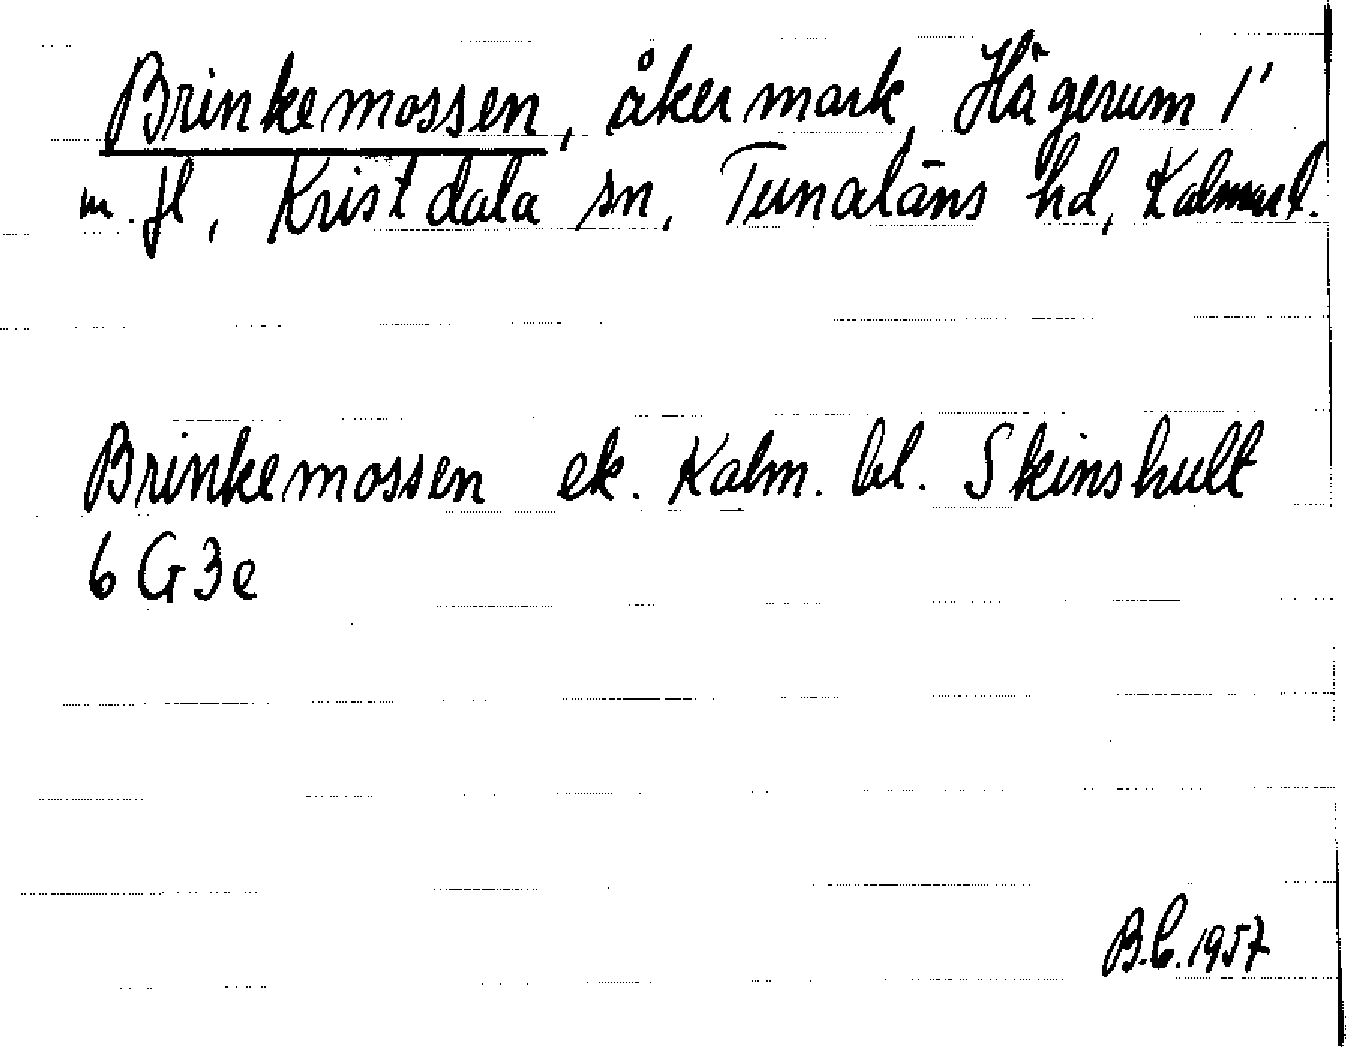 Brinkemossen, åkermark, Hägerum 1'
m. fl, Kristdala sn, Tunaläns hd, Kalmar l.
Brinkemossen ek. Kalm. bl. Skinshult
6 G 3e
B.C. 1957